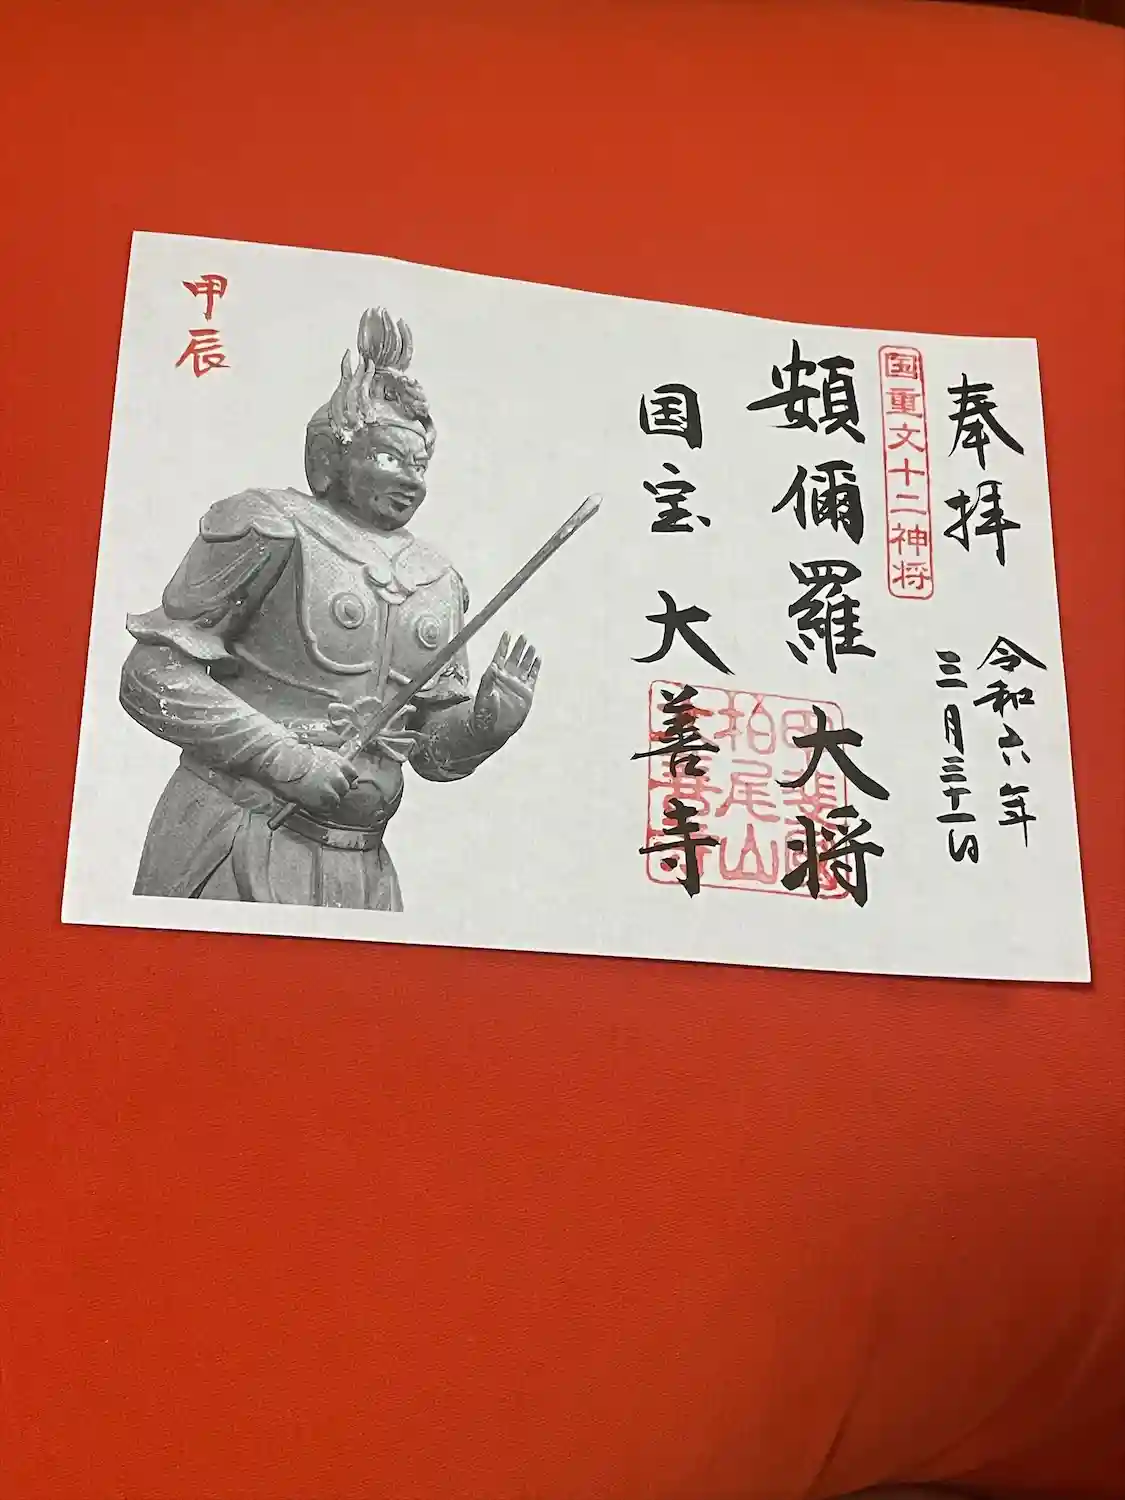 奉拝
令和六年
三月三十一日
国重文十二神将
頞儞羅大将
甲斐国
柏尾山
大善寺
国宝 大善寺
甲辰